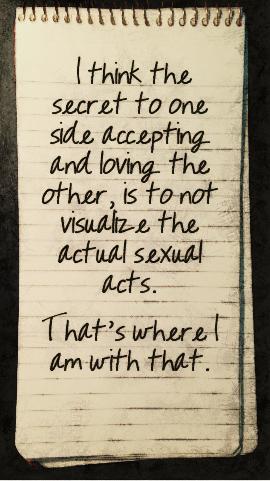 I think the
secret to one
side accepting
and loving the
other, is to not
visualize the
actual sexual
acts.
That's where I
am with that.